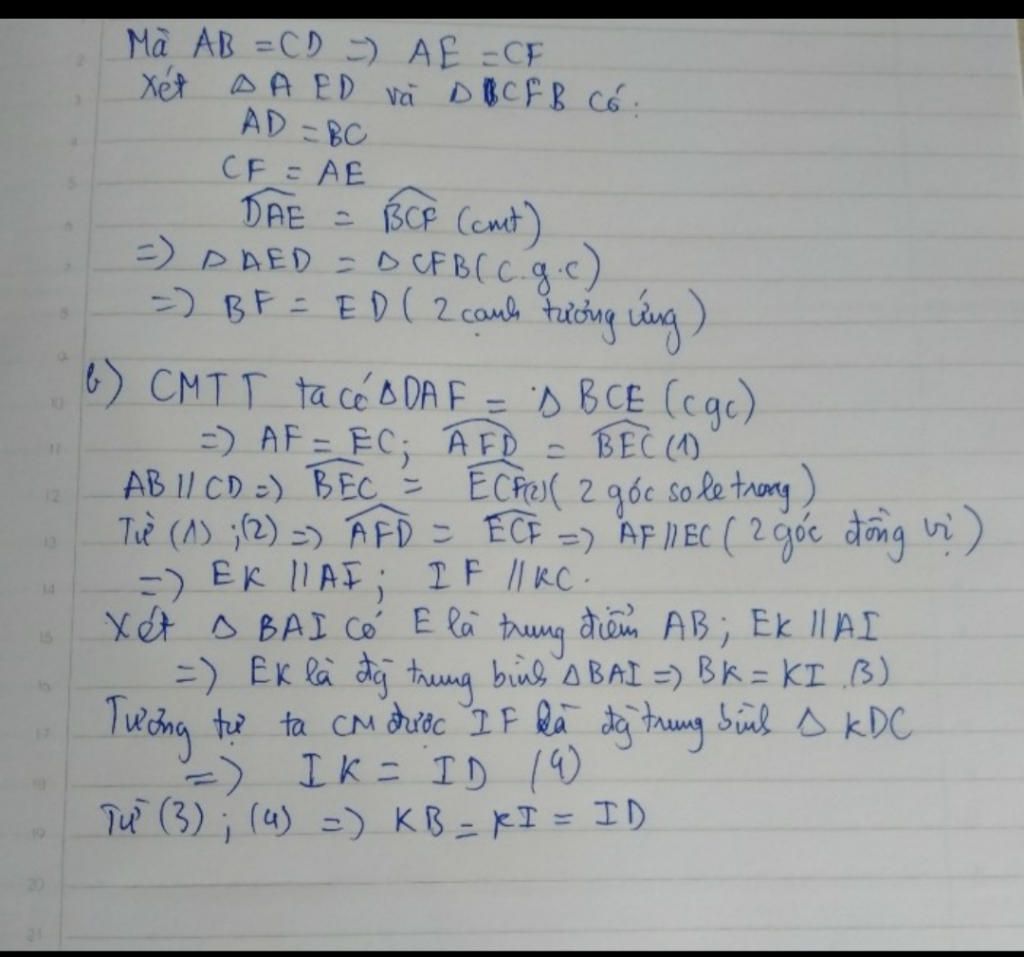 Mà AB = CD => AE = CF
Xét Δ A ED và Δ CFB có:
AD = BC
CF = AE
DAE = BCF (cmt)
=> Δ AED = Δ CFB (c.g.c)
=> BF = ED ( 2 cạnh tương ứng )
b) CMTT ta có Δ DAF = Δ BCE (cgc)
=> AF = EC; AFD = BEC (1)
AB // CD => BEC = ECF(2) ( 2 góc so le trong )
Từ (1) ;(2) => AFD = ECF => AF // EC ( 2 góc đồng vị )
=> EK // AI ; IF // KC.
Xét Δ BAI có E là trung điểm AB ; EK // AI
=> EK là đg trung bình Δ BAI => BK = KI (3)
Tương tự ta CM được IF là đg trung bình Δ KDC
=> IK = ID (4)
Từ (3) ; (4) => KB = KI = ID